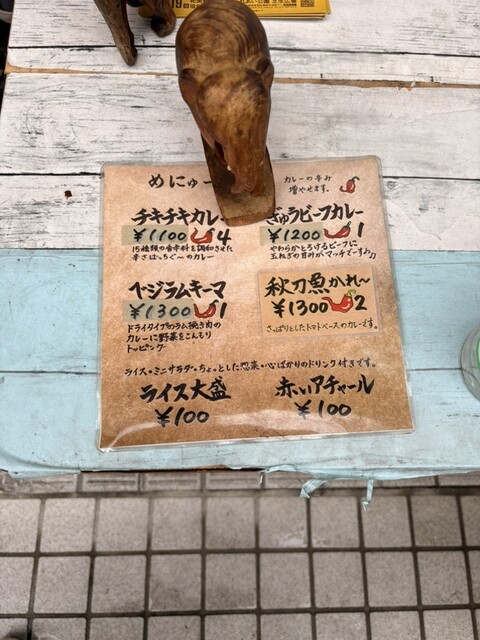 めにゅー
カレーの辛み
増やせます。
チキチキカレー
¥1100 4
15種類の香辛料を調和させた
辛さばっちぐ〜のカレー
ぎゅうビーフカレー
¥1200 1
やわらかとろけるビーフに
玉ねぎの甘みがマッチでーすわ♫
ベジラムキーマ
¥1300 1
ドライタイプのラム挽き肉の
カレーに野菜をこんもり
トッピング
秋刀魚かれ〜
¥1300 2
さっぱりとしたトマトベースのカレーです。
ライス・ミニサラダ・ちょっとした惣菜・心ばかりのドリンク付きです。
ライス大盛
¥100
赤いアチャール
¥100